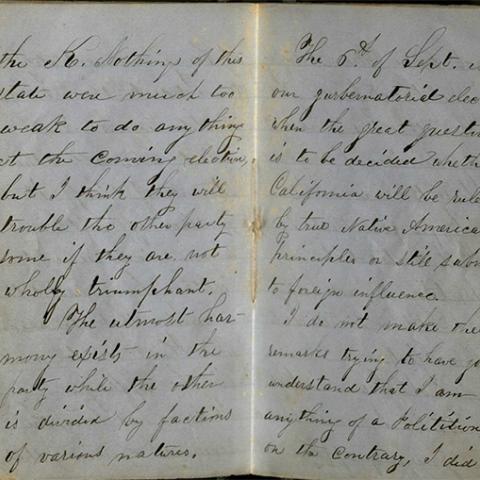 the K. Nothings of this
state were much too
weak to do any thing
at the coming election,
but I think they will
trouble the other party
some if they are not
wholly triumphant.
The utmost har-
mony exists in the
party while the other
is divided by factions
of various natures.
The 6th of Sept. is
our gurbernatorial elec
when the great question
is to be decided wheth
California will be rule
by true Native America
principles or still sub
to foreign influence.
I do not make the
remarks trying to have yo
understand that I am
anything of a Politition
on the contrary, I did